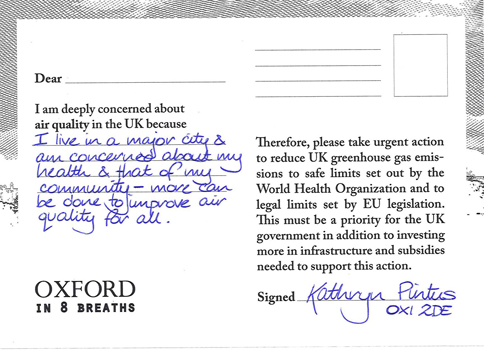 Dear
I am deeply concerned about
air quality in the UK because
I live in a major city &
am concerned about my
health & that of my
community - more can
be done to improve air
quality for all.
OXFORD
IN 8 BREATHS
Therefore, please take urgent action
to reduce UK greenhouse gas emis-
sions to safe limits set out by the
World Health Organization and to
legal limits set by EU legislation.
This must be a priority for the UK
government in addition to investing
more in infrastructure and subsidies
needed to support this action.
Signed Kathryn Pintus
OX1 2DE